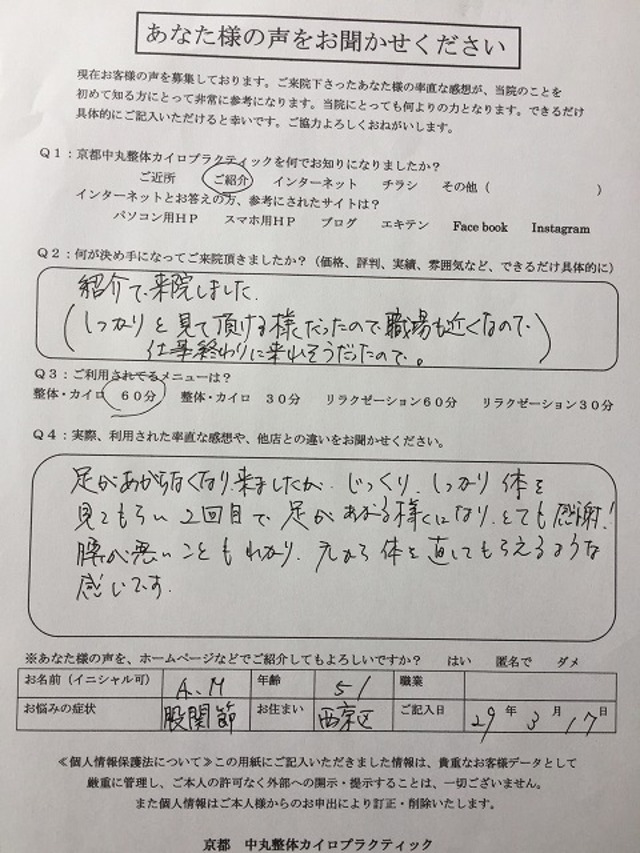 あなた様の声をお聞かせください
現在お客様の声を募集しております。ご来院下さったあなた様の率直な感想が、当院のことを
初めて知る方にとって非常に参考になります。当院にとっても何よりの力となります。できるだけ
具体的にご記入いただけると幸いです。ご協力よろしくおねがいします。
Q1：京都中丸整体カイロプラクティックを何でお知りになりましたか？
ご近所 ご紹介 インターネット チラシ その他（ ）
インターネットとお答えの方、参考にされたサイトは？
パソコン用HP スマホ用HP ブログ エキテン Face book Instagram
Q2：何が決め手になってご来院頂きましたか？（価格、評判、実績、雰囲気など、できるだけ具体的に）
紹介で来院しました.
(しっかりと見て頂ける様だったので職場も近くなので、
仕事終わりに来れそうだったので。)
Q3：ご利用されてるメニューは？
整体・カイロ 60分 整体・カイロ 30分 リラクゼーション60分 リラクゼーション30分
Q4：実際、利用された率直な感想や、他店との違いをお聞かせください。
足があがらなくなり、来ましたが、じっくり、しっかり体を
見てもらい2回目で足があがる様になり、とても感謝!
腰が悪いこともわかり、元から体を直してもらえるような
感じです.
※あなた様の声を、ホームページなどでご紹介してもよろしいですか？ はい 匿名で ダメ
お名前（イニシャル可） A.M 年齢 51 職業
お悩みの症状 股関節 お住まい 西京区 ご記入日 29年 3月 17日
≪個人情報保護法について≫この用紙にご記入いただきました情報は、貴重なお客様データとして
厳重に管理し、ご本人の許可なく外部への開示・提示することは、一切ございません。
また個人情報はご本人様からのお申出により訂正・削除いたします。
京都 中丸整体カイロプラクティック